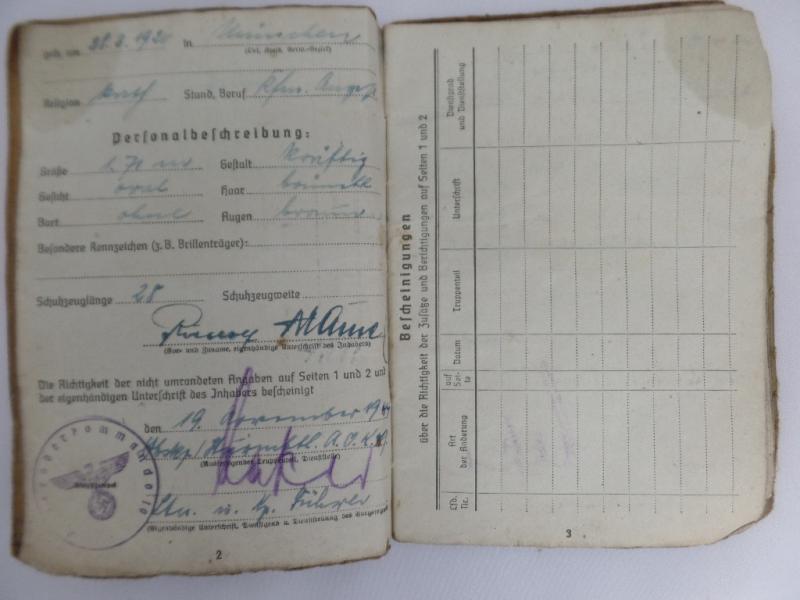 geb. am 28.3.192 in München
(Ort, Kreis, Verw.-Bezirk)
Religion kath Stand, Beruf Kfm. Angest
Personalbeschreibung:
Größe 1,71 m Gestalt kräftig
Gesicht oval Haar
Bart ohne Augen braun
Besondere Kennzeichen (z. B. Brillenträger):
Schuhzeuglänge 28 Schuhzeugweite
(Vor- und Zuname, eigenhändige Unterschrift des Inhabers)
Die Richtigkeit der nicht umrandeten Angaben auf Seiten 1 und 2 und
der eigenhändigen Unterschrift des Inhabers bescheinigt
den 19. November 19
A.O.K.
(Ausfertigender Truppenteil, Dienststelle)
Ltn. u. Führer
(Eigenhändige Unterschrift, Dienstgrad u. Dienststellung des
2
Bescheinigungen
über die Richtigkeit der Zusätze und Berichtigungen auf Seiten 1 und 2
Lfd. Nr.
Art der Änderung
auf Seite
Datum
Truppenteil
Unterschrift
Dienstgrad und Dienststellung
3